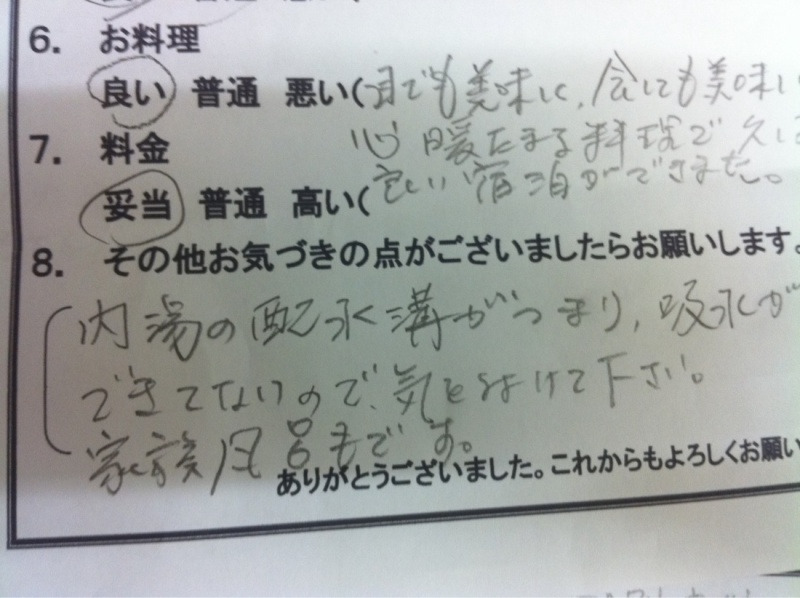 6. お料理
良い 普通 悪い(目でも美味しく、食にも美味し
心暖たまる料理で久し
7. 料金
妥当 普通 高い(良い宿泊ができました。
8. その他お気づきの点がございましたらお願いします。
内湯の配水溝がつまり、吸水が
できてないので、気を付けて下さい。
家族風呂もです。
ありがとうございました。これからもよろしくお願い